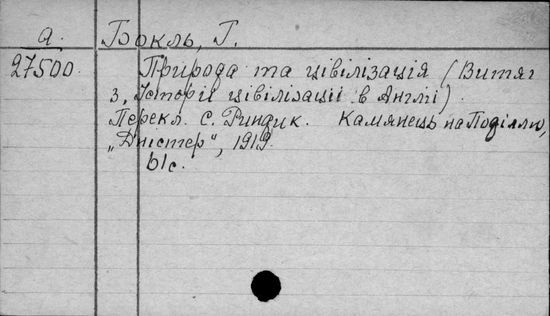 а. Бокль, Г.
27500. Природа та цівілізація (Витяг
з „Історії цівілізації в Англії).
Перекл. С. Риндик. Камянець на Поділлю,
„Дністер", 1919.
b/c.